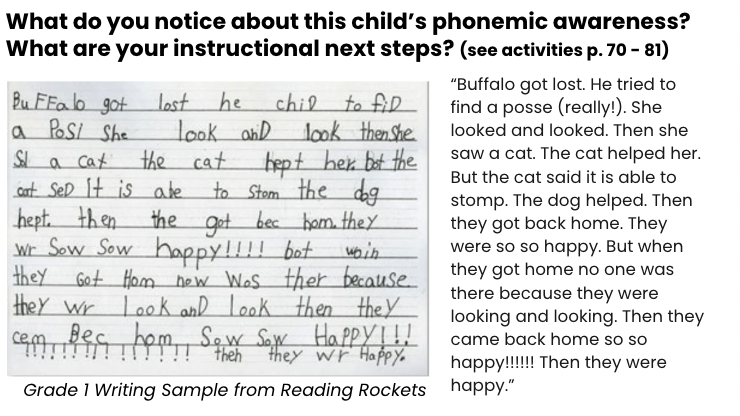 What do you notice about this child's phonemic awareness?
What are your instructional next steps? (see activities p. 70 - 81)
BuFFalo got lost he chiD to fiD
a PoSI She look anD look then She
SI a cat the cat hept her. bot the
cat SeD It is abe to Stom the dog
hept. then the got bec hom. they
wr Sow Sow happy!!!! bot win
they Got Hom now WoS ther because
they wr look anD look then they
cem Bec hom Sow Sow HaPPY!!!
!!!!!!!!!!!!!!! then they wr HaPPy.
Grade 1 Writing Sample from Reading Rockets
"Buffalo got lost. He tried to
find a posse (really!). She
looked and looked. Then she
saw a cat. The cat helped her.
But the cat said it is able to
stomp. The dog helped. Then
they got back home. They
were so so happy. But when
they got home no one was
there because they were
looking and looking. Then they
came back home so so
happy!!!!!! Then they were
happy."